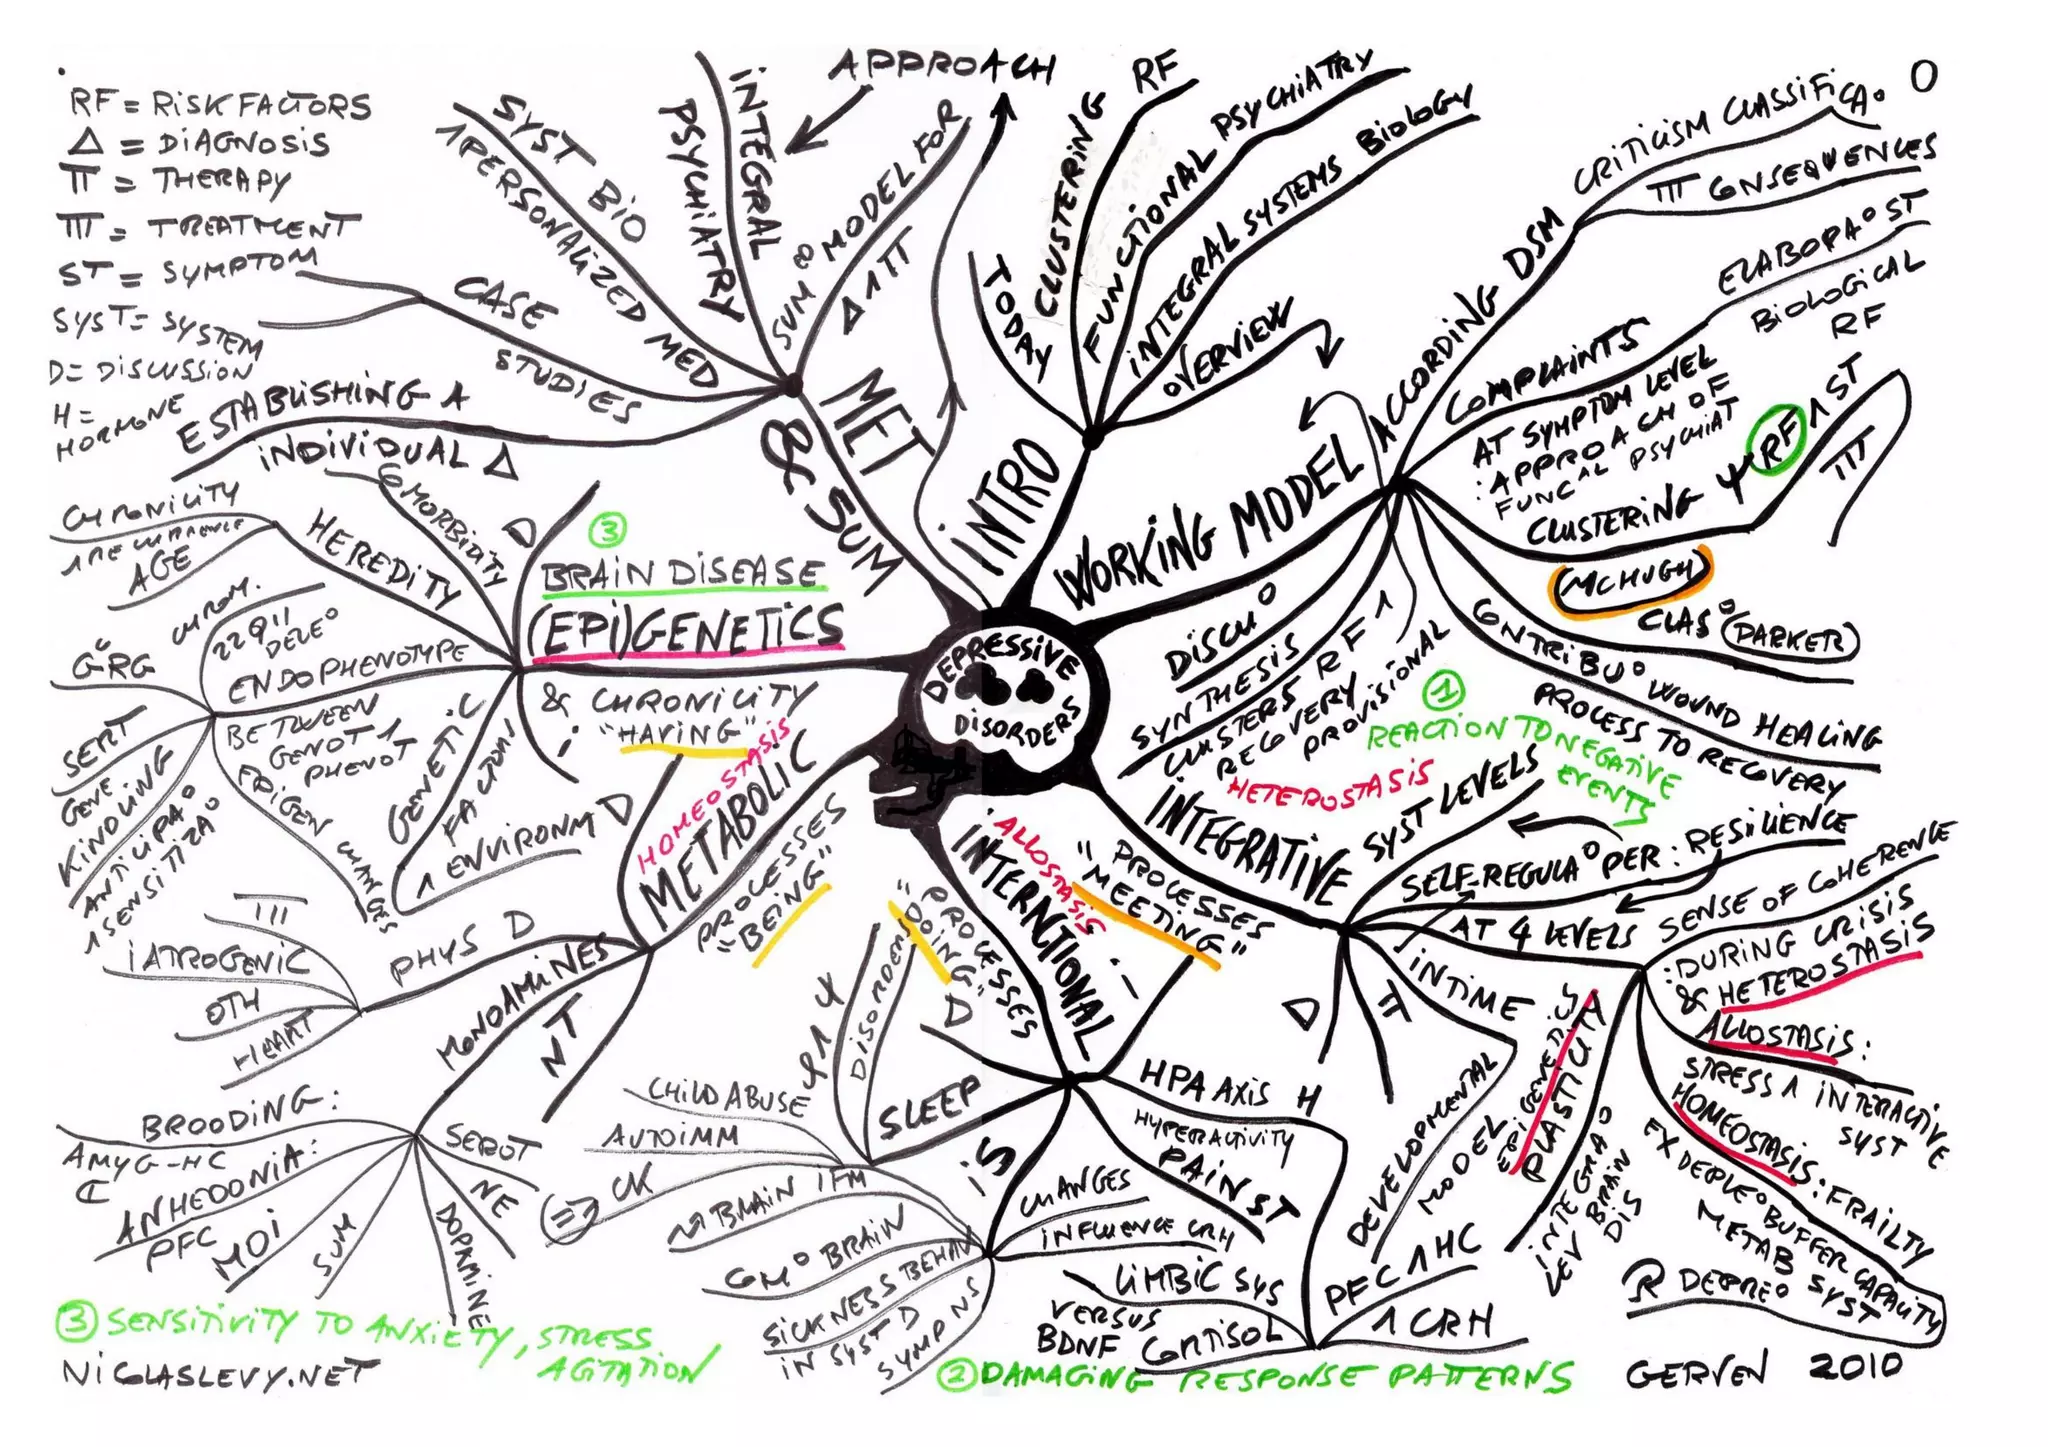 RF = RISK FACTORS
Δ = DIAGNOSIS
π = THERAPY
= TREATMENT
ST = SYMPTOM
SYST = SYSTEM
D = DISCUSSION
H =
HORMONE
APPROACH
DEPRESSIVE
DISORDERS
INTRO
TODAY
CLUSTERING RF
FUNCTIONAL PSYCHIATRY
INTEGRAL SYSTEMS BIOLOGY
OVERVIEW
WORKING MODEL
ACCORDING DSM
CRITICISM CLASSIFICA°
O
CONSEQUENCES
COMPLAINTS
AT SYMPTOM LEVEL
: APPROACH OF
FUNCAL PSYCHIAT
ELABORA° ST
BIOLOGICAL
RF
CLUSTERING Ψ RF 1 ST
MCHUGH
CLAS° (PARKER)
CONTRIBU° WOUND HEALING
PROCESS TO RECOVERY
CLUSTERS RF 1
RECOVERY
PROVISIONAL
SYNTHESIS
DISCU°
① REACTION TO NEGATIVE
EVENTS
HETEROSTASIS
INTEGRATIVE
PROCESSES
"MEETING"
SYST LEVELS
SELF-REGULA° PER: RESILIENCE
AT 4 LEVELS
SENSE OF COHERENCE
: DURING CRISIS
& HETEROSTASIS
ALLOSTASIS:
STRESS 1 INTERACTIVE
SYST
HOMEOSTASIS: FRAILTY
EX DEPLE° BUFFER CAPACITY
METAB SYST
R DEPRE°
EPIGENETICS
PLASTICITY
INTEGRA°
LEV BRAIN
DIS
IN TIME
DEVELOPMENTAL
MODEL
π
D
ALLOSTASIS
INTERACTIONAL
PROCESSES
"DOING"
i
D
HPA AXIS H
HYPERACTIVITY
PFC 1 HC
1 CRH
CORTISOL
LIMBIC SYS
VERSUS
BDNF
PAIN ST
IS
CHANGES
INFLUENCE CRH
BRAIN IFM
COM° BRAIN
SICKNESS BEHAV
IN SYST D
SYMP NS
SLEEP
DISORDERS
CHILD ABUSE
AUTOIMM
=> CK
② DAMAGING RESPONSE PATTERNS
HOMEOSTASIS
METABOLIC
PROCESSES
"BEING"
D
PHYS D
IATROGENIC
OTH
HEART
MONOAMINES
NT
BROODING:
AMYG-HC
ANHEDONIA:
PFC
MOI
SUM
DOPAMINE
NE
SEROT
③
BRAIN DISEASE
(EPI)GENETICS
& CHRONICITY
"HAVING"
i
D
COMORBIDITY
HEREDITY
CHRONICITY
1 RECURRENCE
AGE
ENDOPHENOTYPE
BETWEEN
GENOT 1
PHENOT
CHROM.
22Q11
DELE°
G°RG
SERT
GENE
KINDLING
ANTICIPA°
1 SENSITIZA°
EPIGEN CHANGES
GENETIC
FACTORS
1 ENVIRONM
MET
& SUM
SUM° MODEL FOR
Δ 1 π
INTEGRAL
PSYCHIATRY
SYST BIO
1 PERSONALIZED MED
CASE
STUDIES
ESTABLISHING A
INDIVIDUAL Δ
③ SENSITIVITY TO ANXIETY, STRESS
AGITATION
NICOLASLEVY.NET
GERVEN 2010